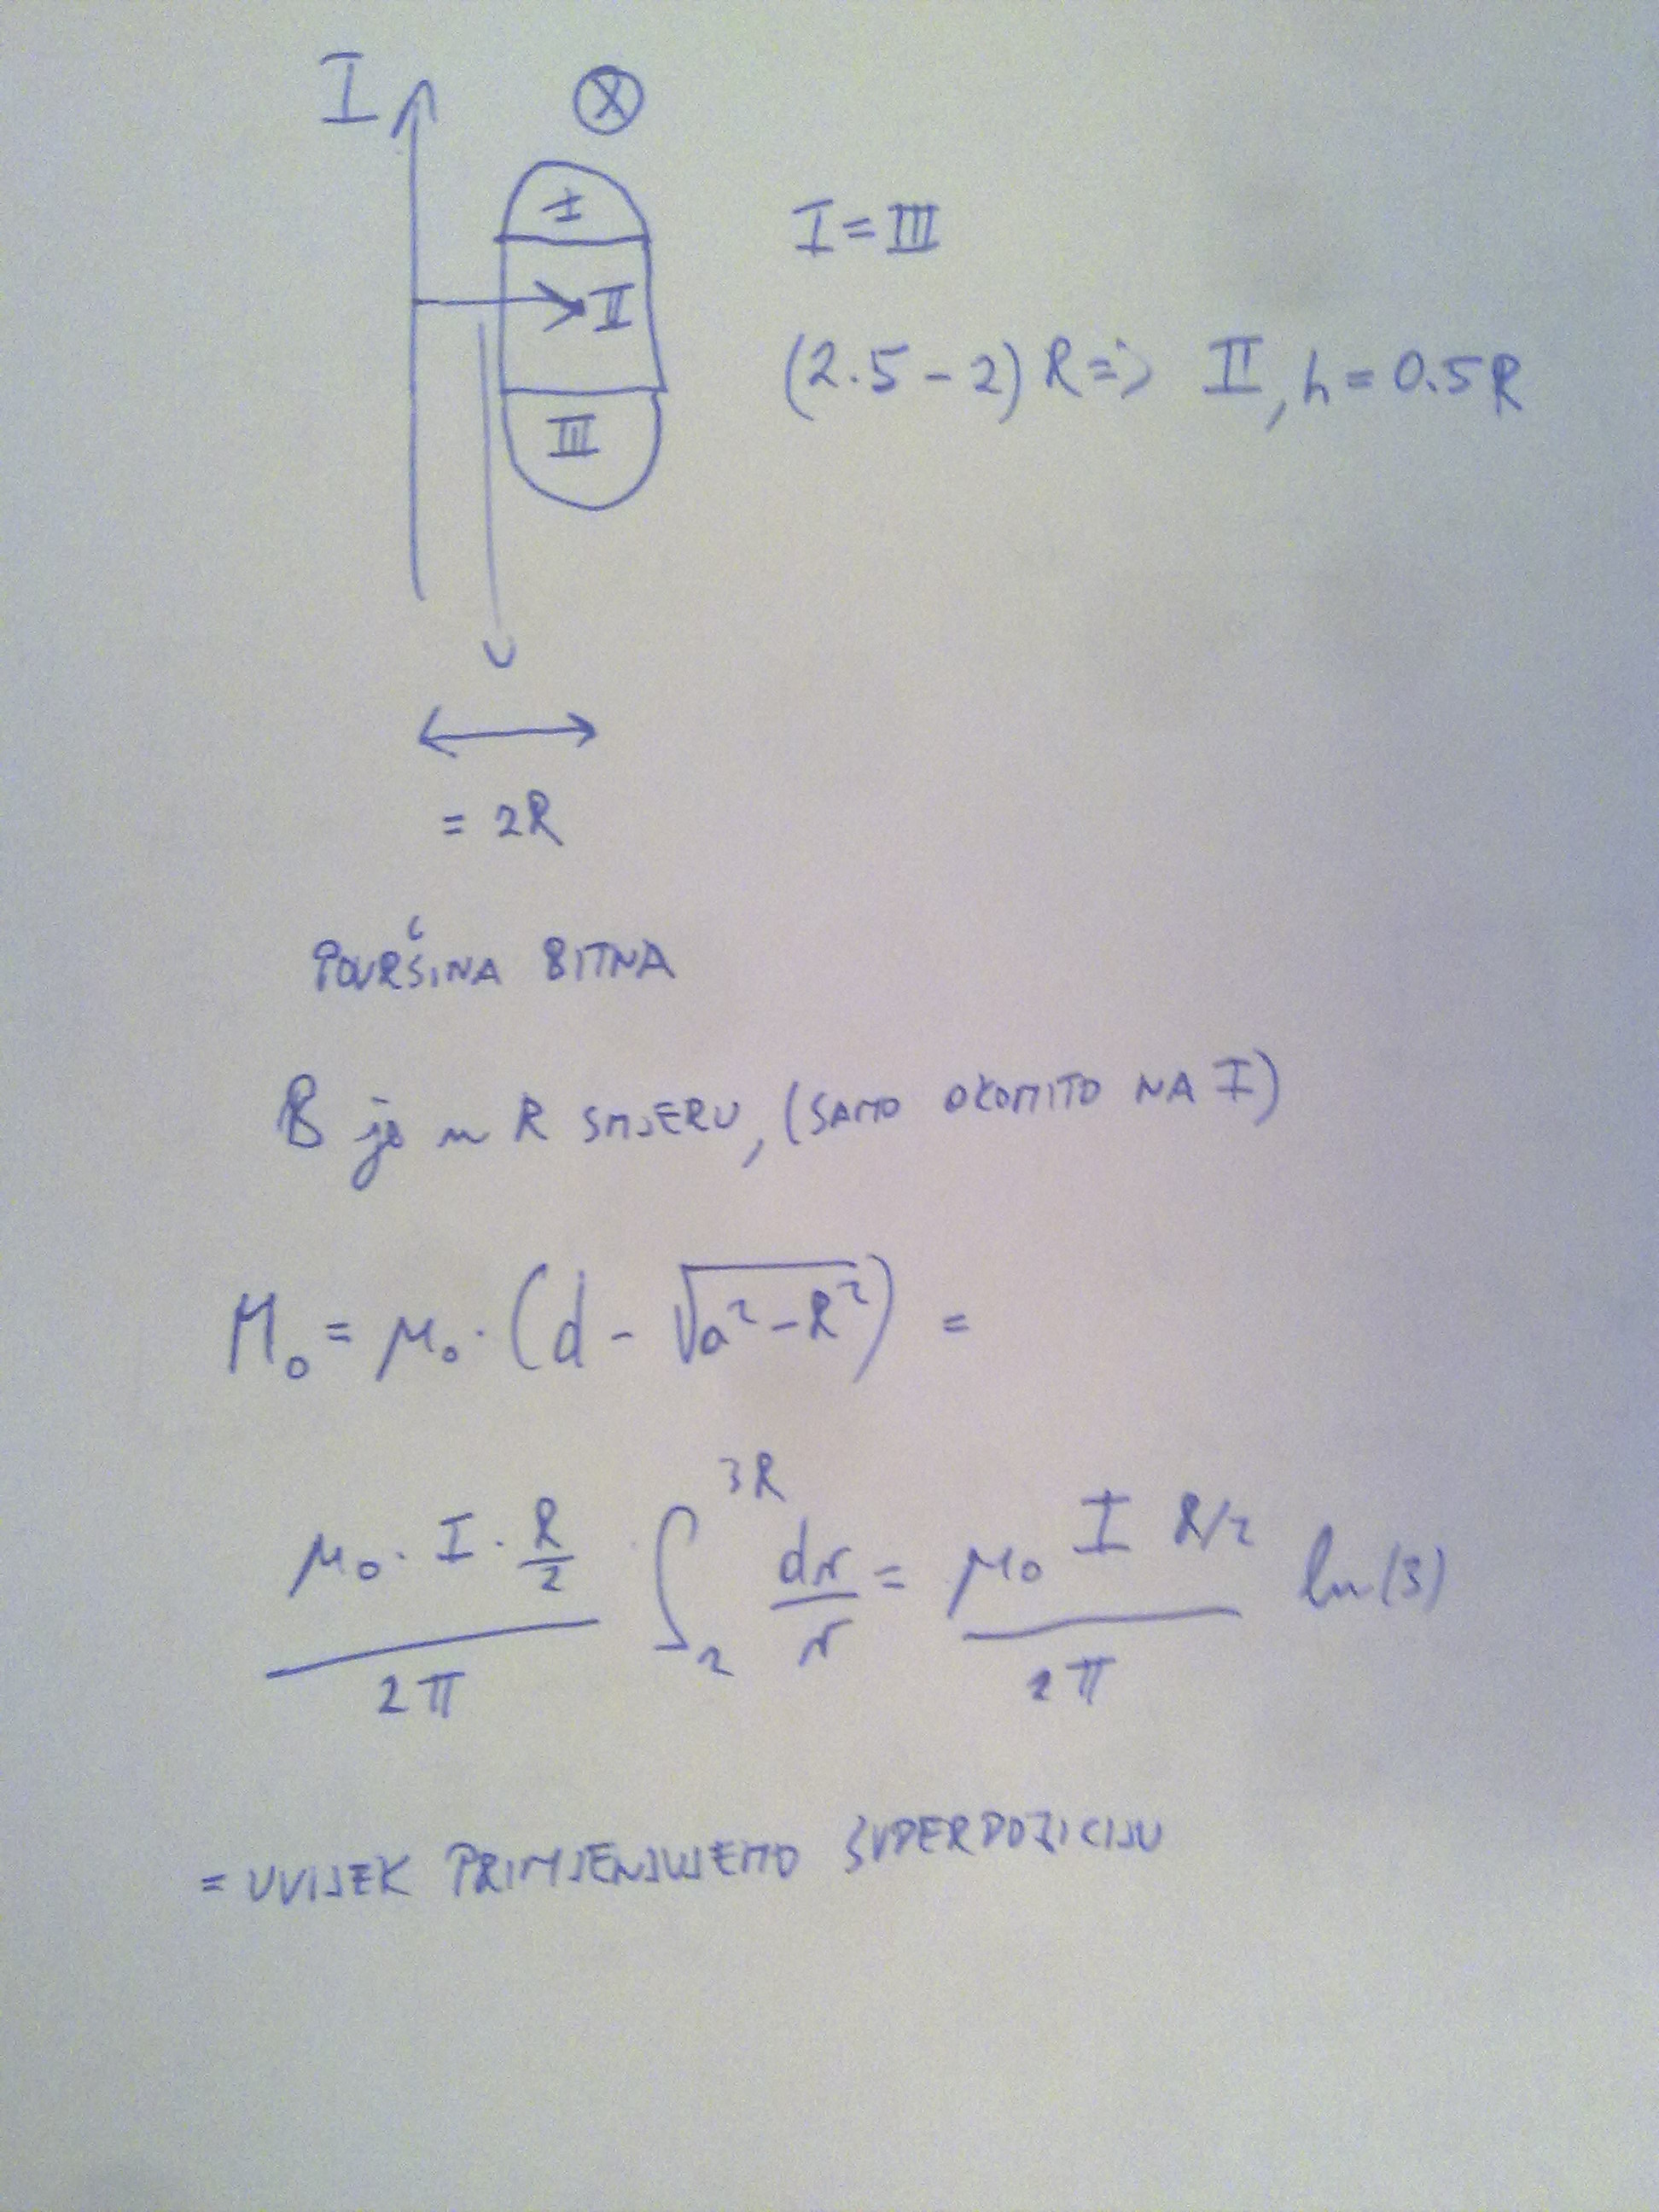 I ⊗
I
II
III
I = III
(2.5 - 2) R => II, h = 0.5R
= 2R
POVRŠINA BITNA
B je u R SMJERU, (SAMO OKOMITO NA I)
M₀ = μ₀ · (d - √(a² - R²)) =
μ₀ · I · R/2 / 2π · ∫₂^3R dr/r = μ₀ I R/2 / 2π ln(3)
= UVIJEK PRIMJENJUJEMO SUPERPOZICIJU